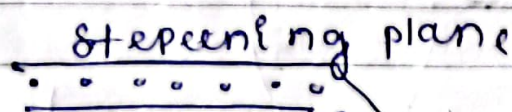 Stepeening plane